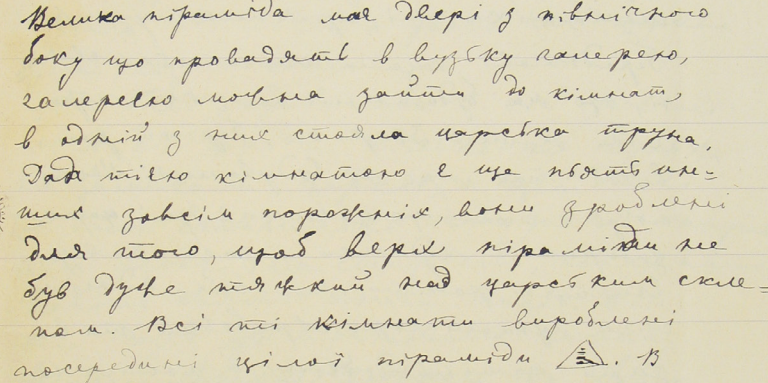 Велика піраміда має двері з північного
боку що провадять в вузьку галерею,
галереєю можна зайти до кімнат,
в одній з них стояла царська труна.
Над тією кімнатою є ще пʼять ин=
ших зовсім порожніх, вони зроблені
для того, щоб верх піраміди не
був дуже тяжкий над царським скле=
пом. Всі ті кімнати вироблені
посередині цілої піраміди . В